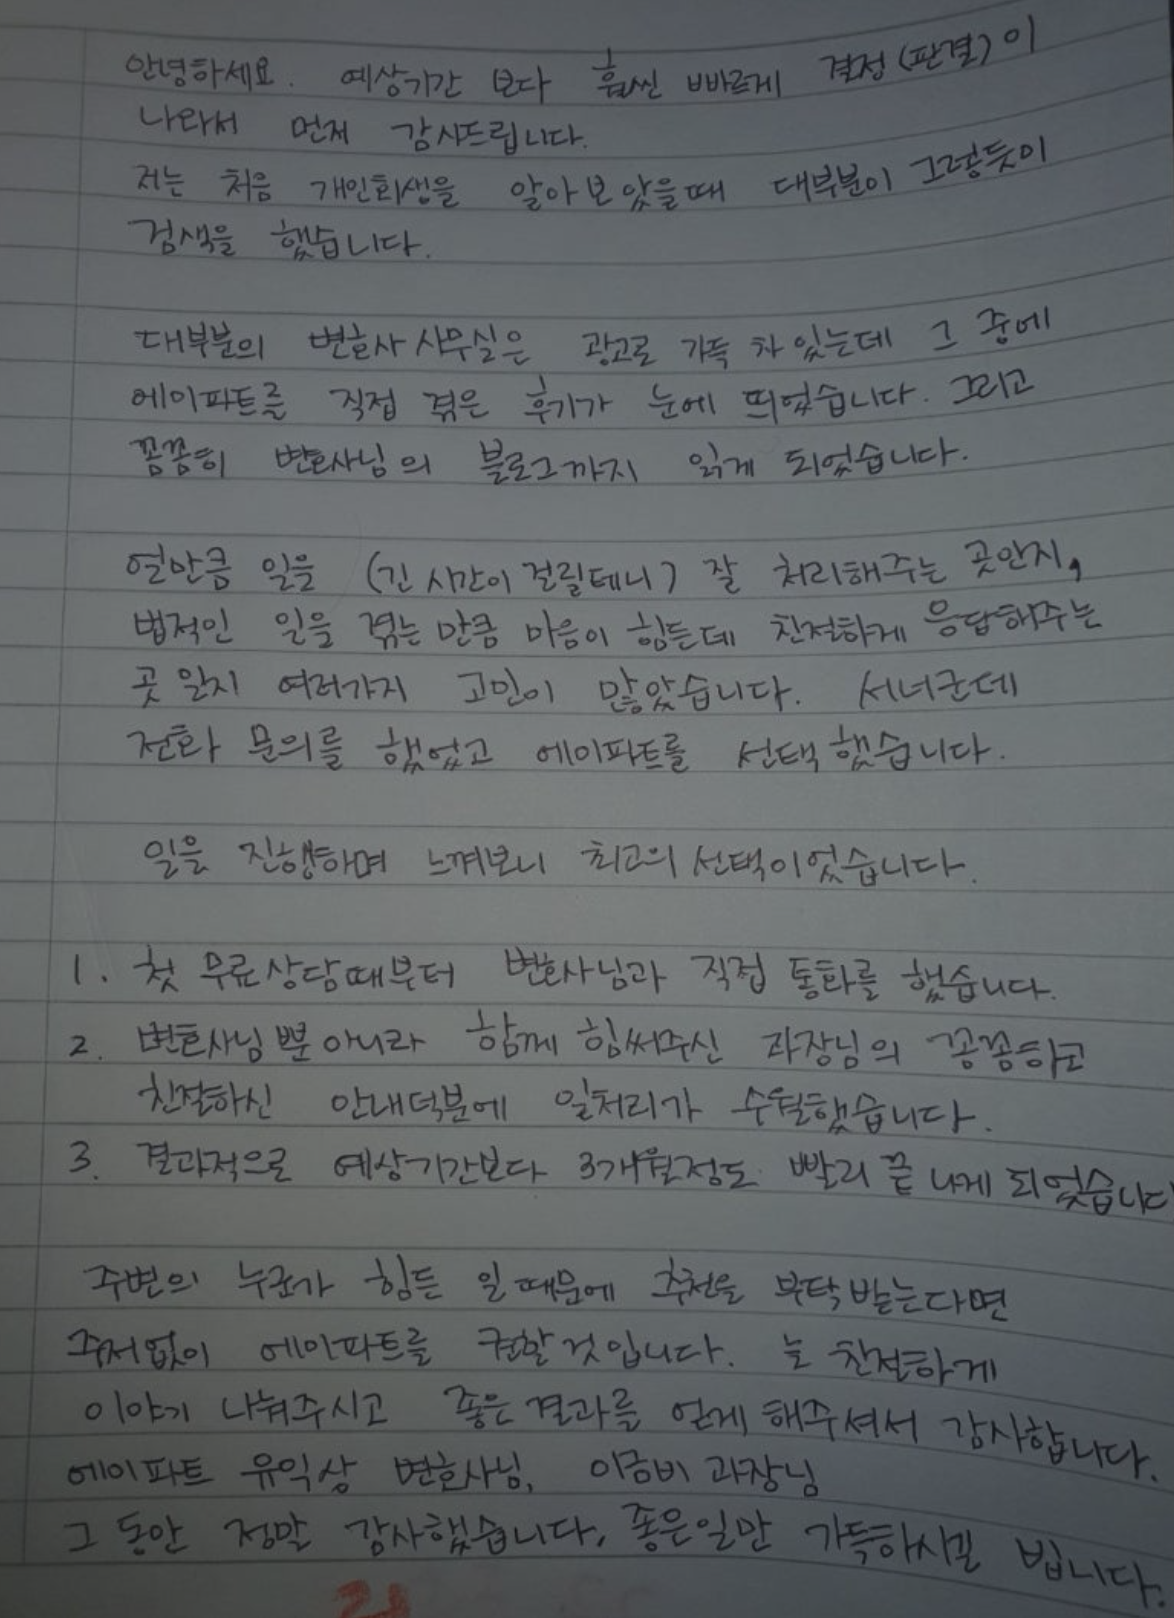 안녕하세요. 예상기간 보다 훨씬 빠르게 결정(판결)이
나와서 먼저 감사드립니다.
저는 처음 개인회생을 알아보았을때 대부분이 그렇듯이
검색을 했습니다.
대부분의 변호사 사무실은 광고로 가득 차 있는데 그 중에
에이파트를 직접 겪은 후기가 눈에 띄었습니다. 그리고
꼼꼼히 변호사님의 블로그까지 읽게 되었습니다.
얼만큼 일을 (긴 시간이 걸릴테니) 잘 처리해주는 곳인지,
법적인 일을 겪는 만큼 마음이 힘든데 친절하게 응답해주는
곳 일지 여러가지 고민이 많았습니다. 서너군데
전화 문의를 했었고 에이파트를 선택했습니다.
일을 진행하며 느껴보니 최고의 선택이었습니다.
1. 첫 무료상담때부터 변호사님과 직접 통화를 했습니다.
2. 변호사님 뿐 아니라 함께 힘써주신 과장님의 꼼꼼하고
친절하신 안내덕분에 일처리가 수월했습니다.
3. 결과적으로 예상기간보다 3개월정도 빨리 끝 나게 되었습니다
주변의 누군가 힘든 일 때문에 추천을 부탁 받는다면
주저없이 에이파트를 권할 것입니다. 늘 친절하게
이야기 나눠주시고 좋은 결과를 얻게 해주셔서 감사합니다.
에이파트 유익상 변호사님, 이금비 과장님
그 동안 정말 감사했습니다. 좋은일만 가득하시길 빕니다.